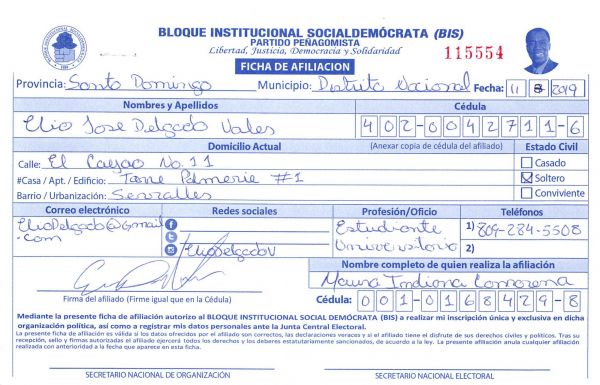 BLOQUE INSTITUCIONAL SOCIALDEMÓCRATA (BIS)
PARTIDO PEÑAGOMISTA
Libertad, Justicia, Democracia y Solidaridad
115554
FICHA DE AFILIACION
Provincia: Santo Domingo Municipio: Distrito Nacional Fecha: 11 8 2019
Nombres y Apellidos Cédula
Elio Jose Delgado Vales 402-0042711-6
Domicilio Actual (Anexar copia de cédula del afiliado) Estado Civil
Calle: El Cayao No. 11 Casado
#Casa / Apt. / Edificio: Torre Palmerie #1 Soltero
Barrio / Urbanización: Serralles Conviviente
Correo electrónico Redes sociales Profesión/Oficio Teléfonos
ElioDelgado@Gmail Estudiante 1) 809-284-5508
.com ElioDelgadoV Universitario 2)
Nombre completo de quien realiza la afiliación
Maura Indiana
Firma del afiliado (Firme igual que en la Cédula) Cédula: 001-0168429-8
Mediante la presente ficha de afiliación autorizo al BLOQUE INSTITUCIONAL SOCIAL DEMÓCRATA (BIS) a realizar mi inscripción única y exclusiva en dicha
organización política, así como a registrar mis datos personales ante la Junta Central Electoral.
La presente ficha de afiliación es válida si los datos ofrecidos por el afiliado son correctos, las declaraciones veraces y si el afiliado tiene el disfrute de sus derechos civiles y políticos. Tras su
recepción, sello y firmas autorizadas el afiliado ejercerá todos los derechos y los deberes estatutariamente sancionados, de acuerdo a la ley. La presente afiliación anula cualquier afiliación
realizada con anterioridad a la fecha que aparece en esta ficha.
SECRETARIO NACIONAL DE ORGANIZACIÓN SECRETARIO NACIONAL ELECTORAL